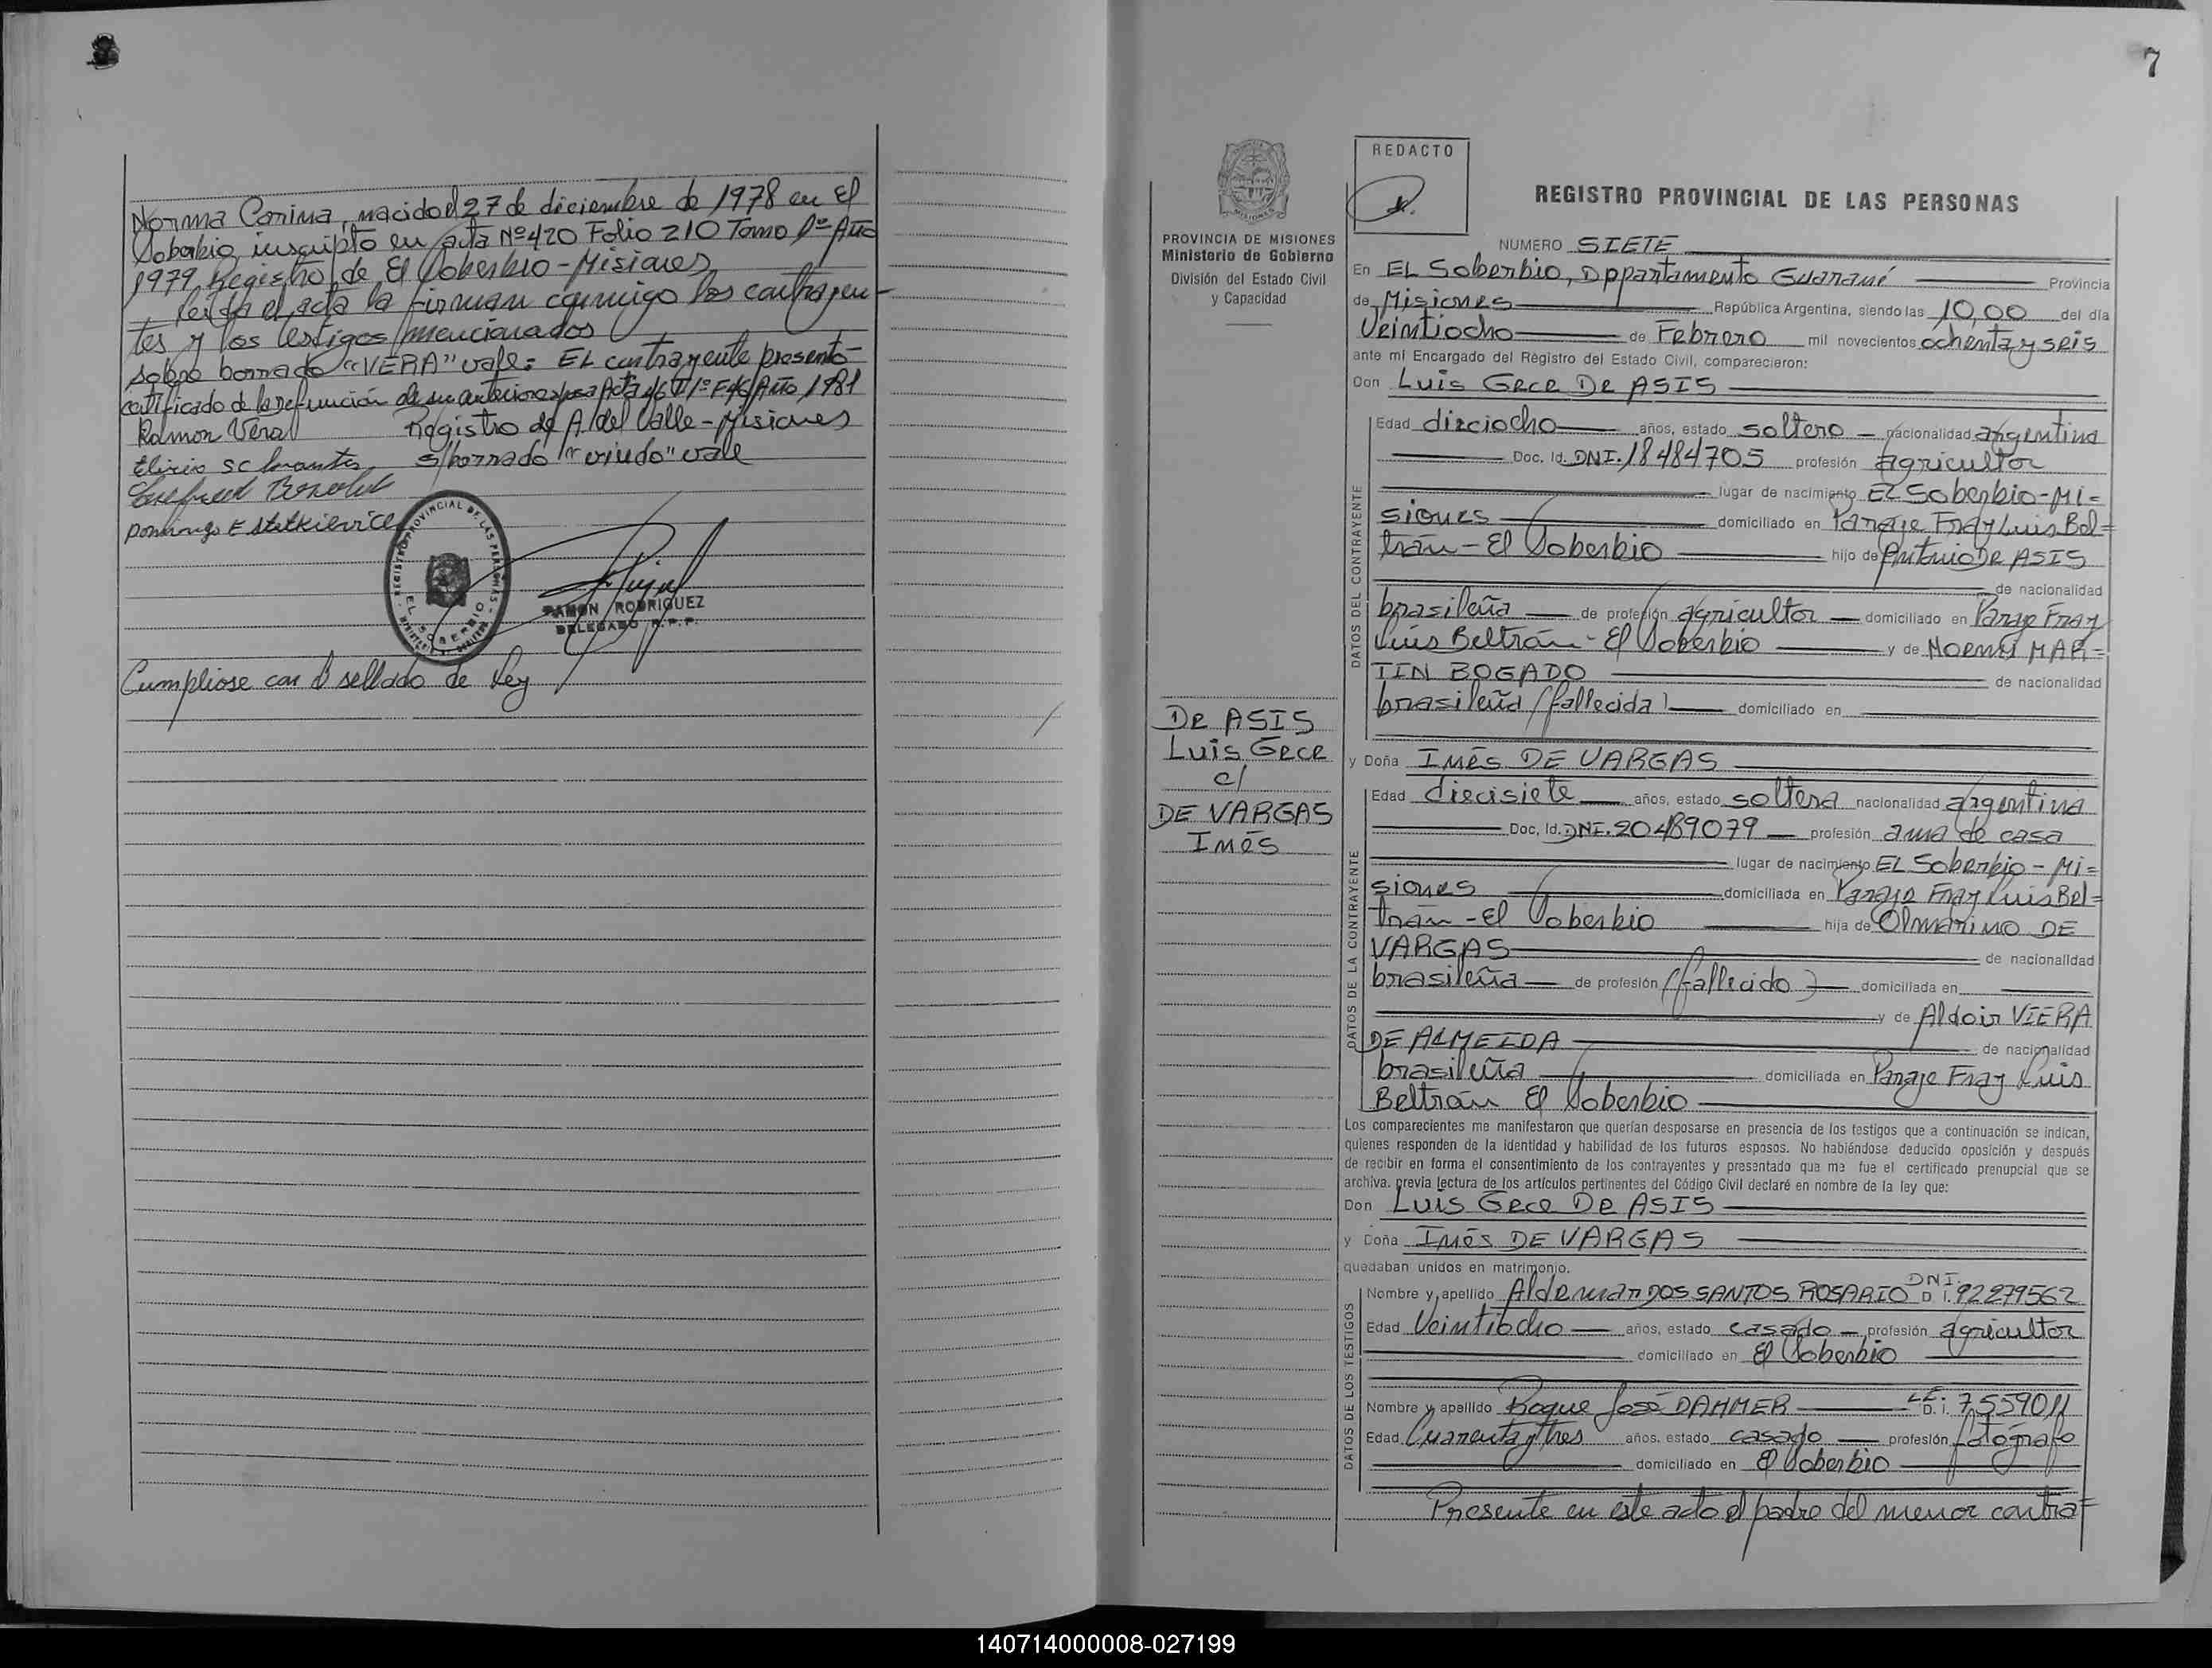 Norma Corina, nacido el 27 de diciembre de 1978 en El
Soberbio, inscripto en acta Nº 420 Folio 210 Tomo Iº Año
1979 Registro de El Soberbio - Misiones
Leída el acta la firman conmigo los contrayen-
tes y los testigos mencionados
sobre borrado "VERA" vale: EL contrayente presentó
certificado de la defunción de su anterior esposa Acta 46 T Iº F 46 Año 1981
Ramon Vera Registro de A. del Valle - Misiones
s/borrado "viudo" vale
Domingo E
REGISTRO PROVINCIAL DE LAS PERSONAS
EL SOBERBIO
RAMON RODRIGUEZ
DELEGADO R.P.P.
Cumpliose con el sellado de Ley
7
REDACTO
REGISTRO PROVINCIAL DE LAS PERSONAS
MISIONES
PROVINCIA DE MISIONES
Ministerio de Gobierno
División del Estado Civil
y Capacidad
DE ASIS
Luis Gece
c/
DE VARGAS
Inés
NUMERO SIETE
En EL Soberbio, Dppartamento Guaraní Provincia
de Misiones República Argentina, siendo las 10,00 del día
Veintiocho de Febrero mil novecientos ochenta y seis
ante mí Encargado del Registro del Estado Civil, comparecieron:
Don Luis Gece DE ASIS
DATOS DEL CONTRAYENTE
Edad dieciocho años, estado soltero nacionalidad argentina
Doc. Id. DNI. 18484705 profesión agricultor
lugar de nacimiento EL Soberbio - Mi=
siones domiciliado en Paraje Fray Luis Bel=
trán - El Soberbio hijo de Antonio DE ASIS
de nacionalidad
brasileña de profesión agricultor domiciliado en Paraje Fray
Luis Beltrán - El Soberbio y de NOEMI MAR=
TIN BOGADO de nacionalidad
brasileña (fallecida) domiciliado en
y Doña Inés DE VARGAS
DATOS DE LA CONTRAYENTE
Edad diecisiete años, estado soltera nacionalidad argentina
Doc. Id. DNI. 20489079 profesión ama de casa
lugar de nacimiento EL Soberbio - Mi=
siones domiciliada en Paraje Fray Luis Bel=
trán - El Soberbio hija de Olmarino DE
VARGAS de nacionalidad
brasileña de profesión (fallecido) domiciliada en
y de Aldoir VIERA
DE ALMEIDA de nacionalidad
brasileña domiciliada en Paraje Fray Luis
Beltrán El Soberbio
Los comparecientes me manifestaron que querían desposarse en presencia de los testigos que a continuación se indican,
quienes responden de la identidad y habilidad de los futuros esposos. No habiéndose deducido oposición y después
de recibir en forma el consentimiento de los contrayentes y presentado que me fue el certificado prenupcial que se
archiva, previa lectura de los artículos pertinentes del Código Civil declaré en nombre de la ley que:
Don Luis Gece DE ASIS
y Doña Inés DE VARGAS
quedaban unidos en matrimonio.
DATOS DE LOS TESTIGOS
Nombre y apellido Aldemar DOS SANTOS ROSARIO DNI. D. I. 92279562
Edad Veintiocho años, estado casado profesión agricultor
domiciliado en El Soberbio
Nombre y apellido Roque José DAMMER L.E. D. I. 7.559011
Edad Cuarenta y tres años, estado casado profesión fotógrafo
domiciliado en El Soberbio
Presente en este acto el padre del menor contra=
140714000008-027199